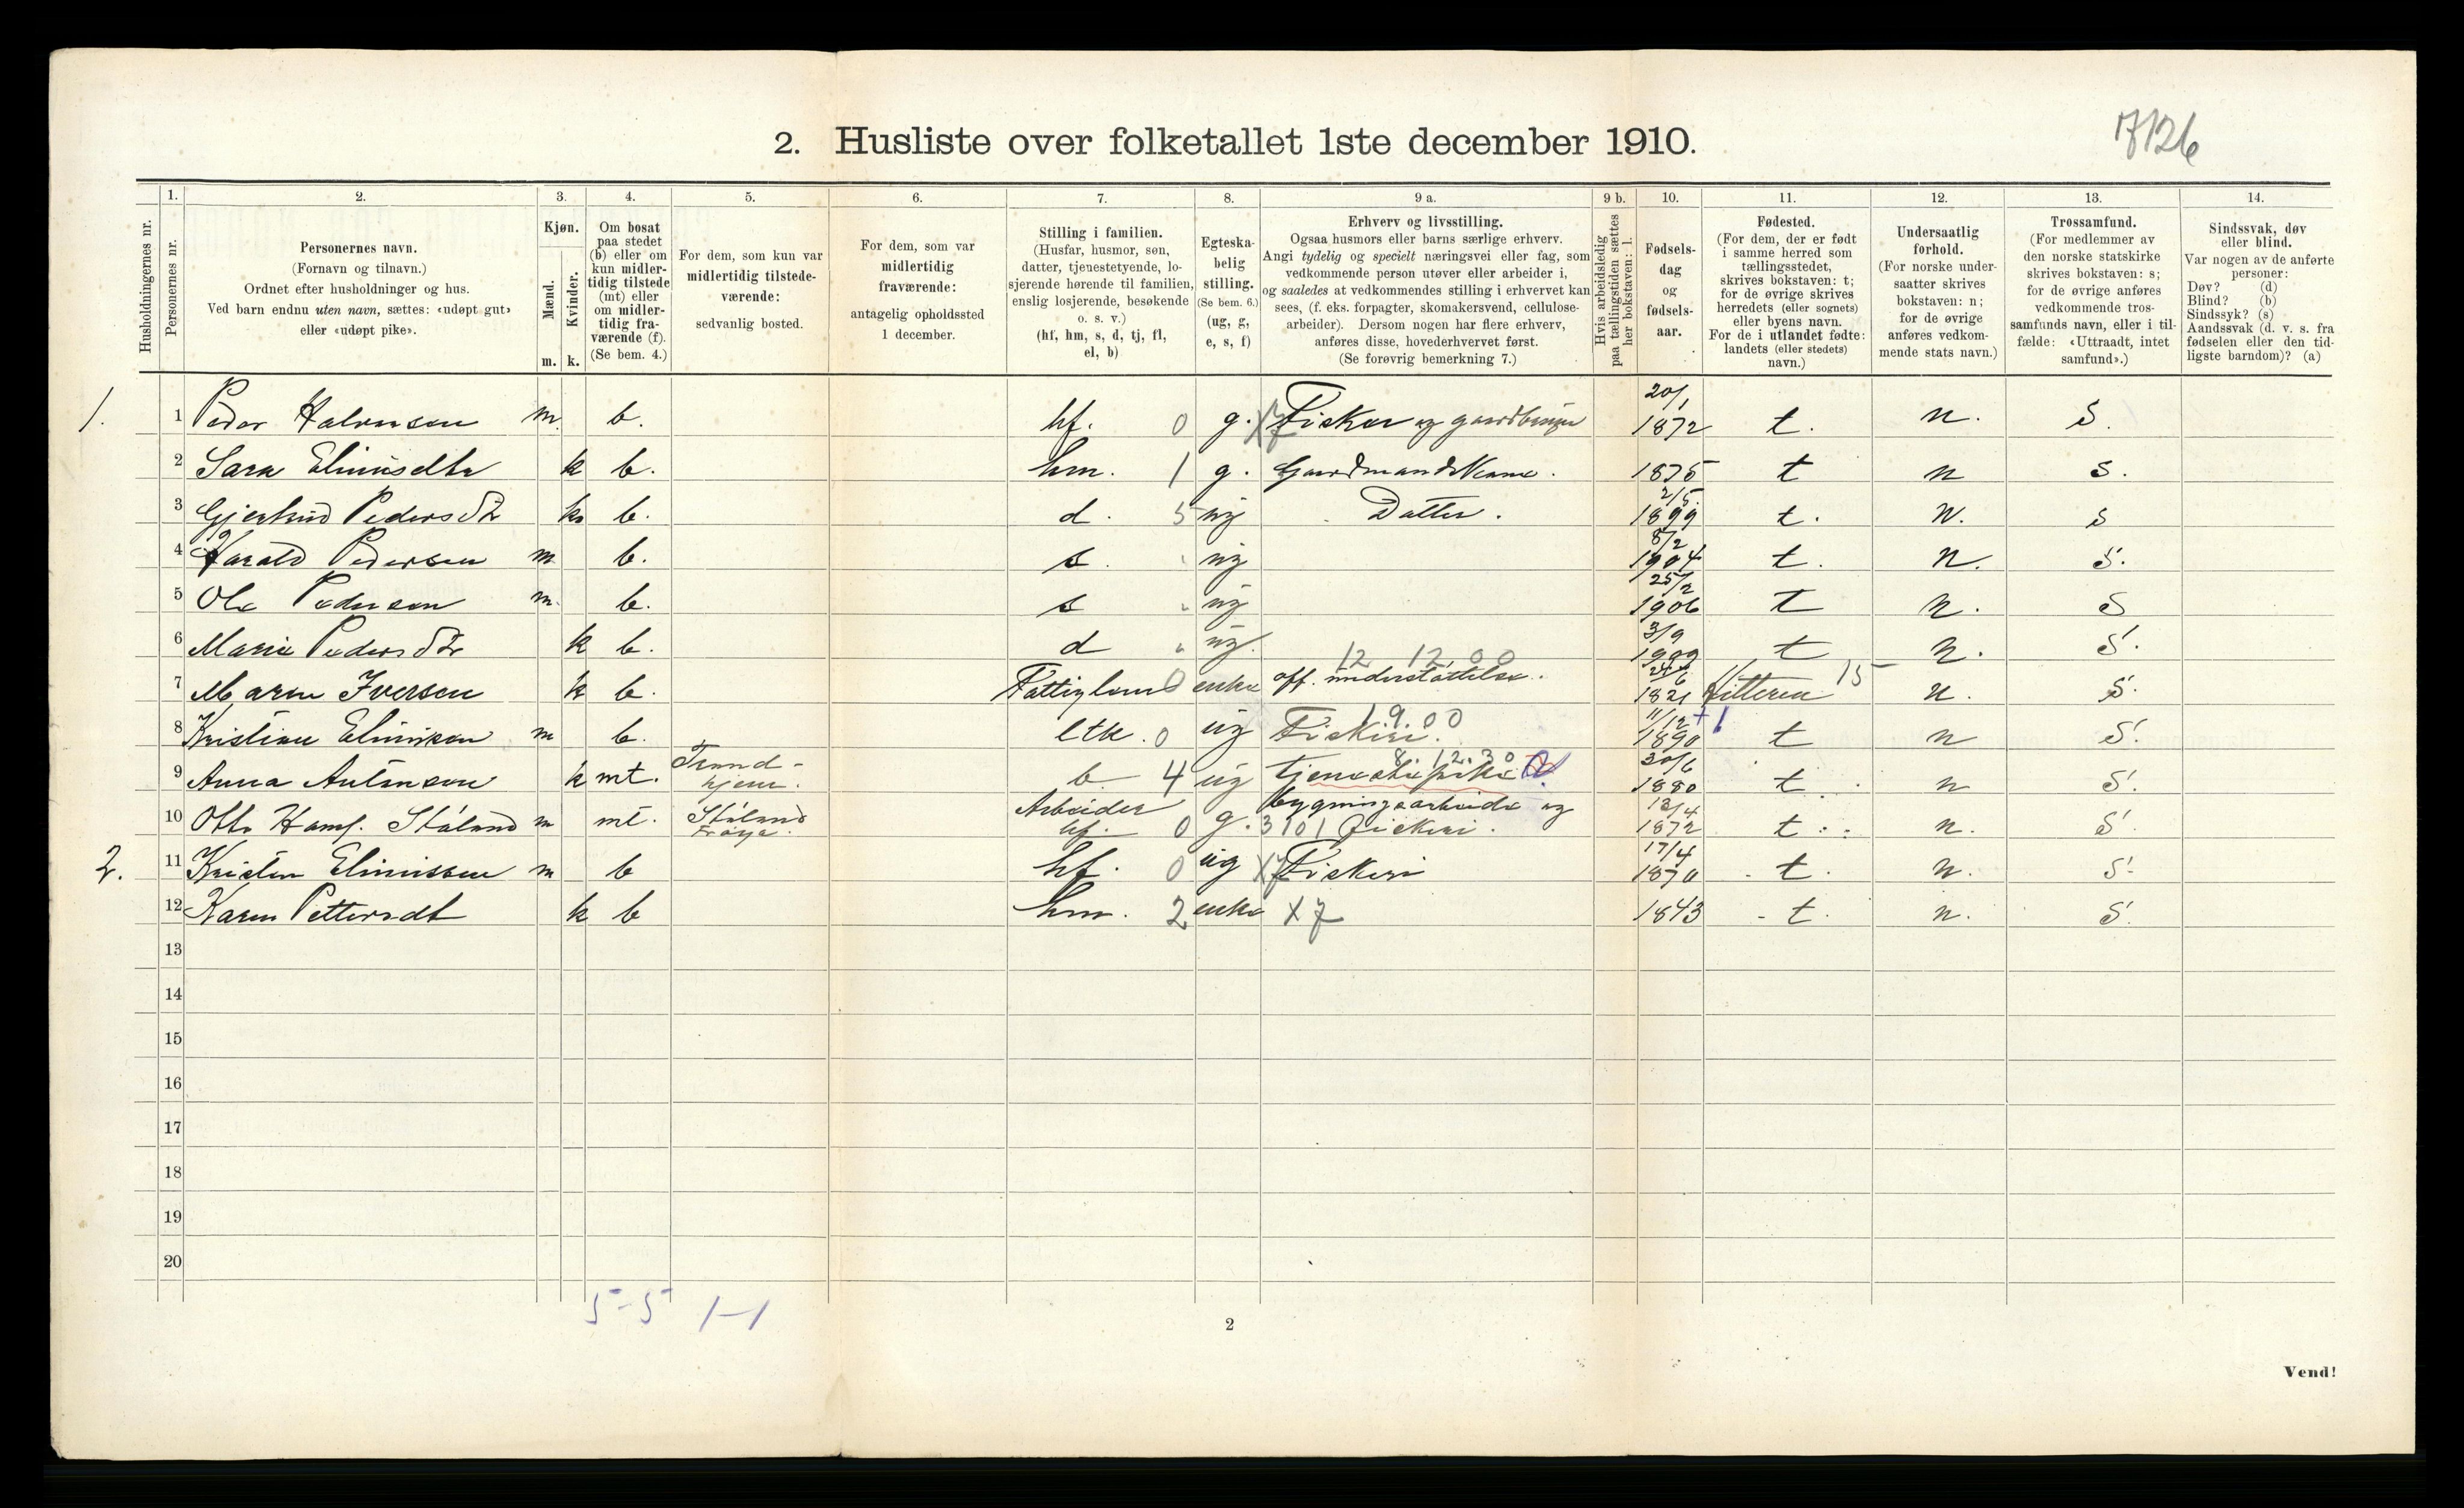 2. Husliste over folketallet 1ste december 1910.
17126
Husholdningernes nr.
1.
Personernes nr.
2.
Personernes navn.
(Fornavn og tilnavn.)
Ordnet efter husholdninger og hus.
Ved barn endnu uten navn, sættes: «udøpt gut»
eller «udøpt pike».
3.
Kjøn.
Mænd.
Kvinder.
m. k.
4.
Om bosat
paa stedet
(b) eller om
kun midler-
tidig tilstede
(mt) eller
om midler-
tidig fra-
værende (f).
(Se bem. 4.)
5.
For dem, som kun var
midlertidig tilstede-
værende:
sedvanlig bosted.
6.
For dem, som var
midlertidig
fraværende:
antagelig opholdssted
1 december.
7.
Stilling i familien.
(Husfar, husmor, søn,
datter, tjenestetyende, lo-
sjerende hørende til familien,
enslig losjerende, besøkende
o. s. v.)
(hf, hm, s, d, tj, fl,
el, b)
8.
Egteska-
belig
stilling.
(Se bem. 6.)
(ug, g,
e, s, f)
9 a.
Erhverv og livsstilling.
Ogsaa husmors eller barns særlige erhverv.
Angi tydelig og specielt næringsvei eller fag, som
vedkommende person utøver eller arbeider i,
og saaledes at vedkommendes stilling i erhvervet kan
sees, (f. eks. forpagter, skomakersvend, cellulose-
arbeider). Dersom nogen har flere erhverv,
anføres disse, hovederhvervet først.
(Se forøvrig bemerkning 7.)
9 b.
Hvis arbeidsledig
paa tællingstiden sættes
her bokstaven: l.
10.
Fødsels-
dag
og
fødsels-
aar.
11.
Fødested.
(For dem, der er født
i samme herred som
tællingsstedet,
skrives bokstaven: t;
for de øvrige skrives
herredets (eller sognets)
eller byens navn.
For de i utlandet fødte:
landets (eller stedets)
navn.)
12.
Undersaatlig
forhold.
(For norske under-
saatter skrives
bokstaven: n;
for de øvrige
anføres vedkom-
mende stats navn.)
13.
Trossamfund.
(For medlemmer av
den norske statskirke
skrives bokstaven: s;
for de øvrige anføres
vedkommende tros-
samfunds navn, eller i til-
fælde: «Uttraadt, intet
samfund».)
14.
Sindssvak, døv
eller blind.
Var nogen av de anførte
personer:
Døv? (d)
Blind? (b)
Sindssyk? (s)
Aandssvak (d. v. s. fra
fødselen eller den tid-
ligste barndom)? (a)
1. 1 Peder Halvnsen m b. hf. 0 g. x7 Fisker og gaardbruger 20/1 1872 t. n. S.
2 Sara Elinusdtr k b. hm. 1 g. Gaardmands Kone. 1875 t n s.
3 Gjertrud Pedersdtr k b. d. 5 ug Datter. 2/5 1899 t. n. s
4 Harald Pedersen m b. s. " ug 8/2 1904 t. n. S.
5 Ole Pedersen m. b. s " ug 25/2 1906 t n. S
6 Marie Pedersdtr k b. d " ug. 3/9 1909 t n. S.
12 12 00
7 Maren Iversen k b. Fattiglem 0 enke off. understøttelse. 24/6 1821 Hitteren 15 n. S.
19.00
8 Kristian Elinisen m b. ltk. 0 ug Fiskeri. 11/12 1890 +1 t n S.
8.12.30
9 Anna Antonsen k mt. Trond-hjem. b 4 ug tjenestepike 30/6 1880 t. n S.
10 Otto Støland m mt. Støland Frøya. Arbeider hf. 0 g. bygningsarbeide og 3101 Fiskeri. 13/4 1872 t. n. S.
2. 11 Kristen Elinissen m b hf. 0 ug x7 Fiskeri 17/4 1870 - t. n. S.
12 Karen Pettersdt k b hm. 2 enke x7 1843 - t. n. S.
13
14
15
16
17
18
19
20
5-5 1-1
2
Vend!